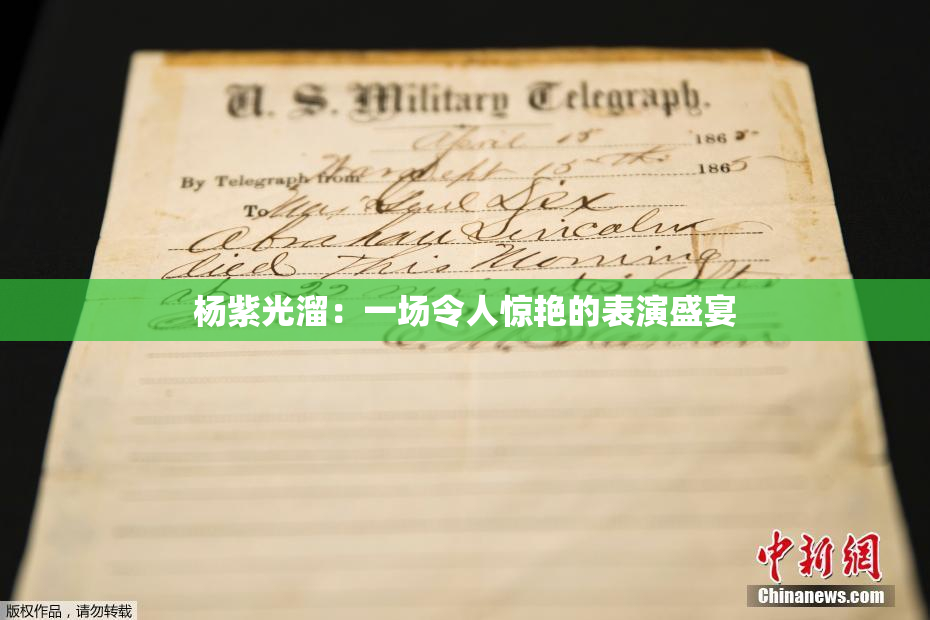 U. S. Military Telegraph.
April 15 1865
By Telegraph from War Dept 15th 1865
To Maj Genl Dix
Abraham Lincoln
died This Morning
at 22 minutes after
杨紫光溜：一场令人惊艳的表演盛宴
E. M. Stanton
中新网
Chinanews.com
版权作品，请勿转载